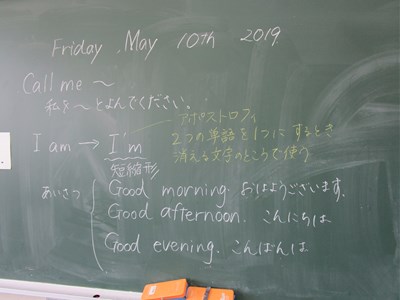 Friday, May 10th 2019.
Call me ～
私を～とよんでください。
アポストロフィ
I am → I'm
2つの単語を1つにするとき
消える文字のところで使う
短縮形
あいさつ
Good morning. おはようございます。
Good afternoon. こんにちは
Good evening. こんばんは